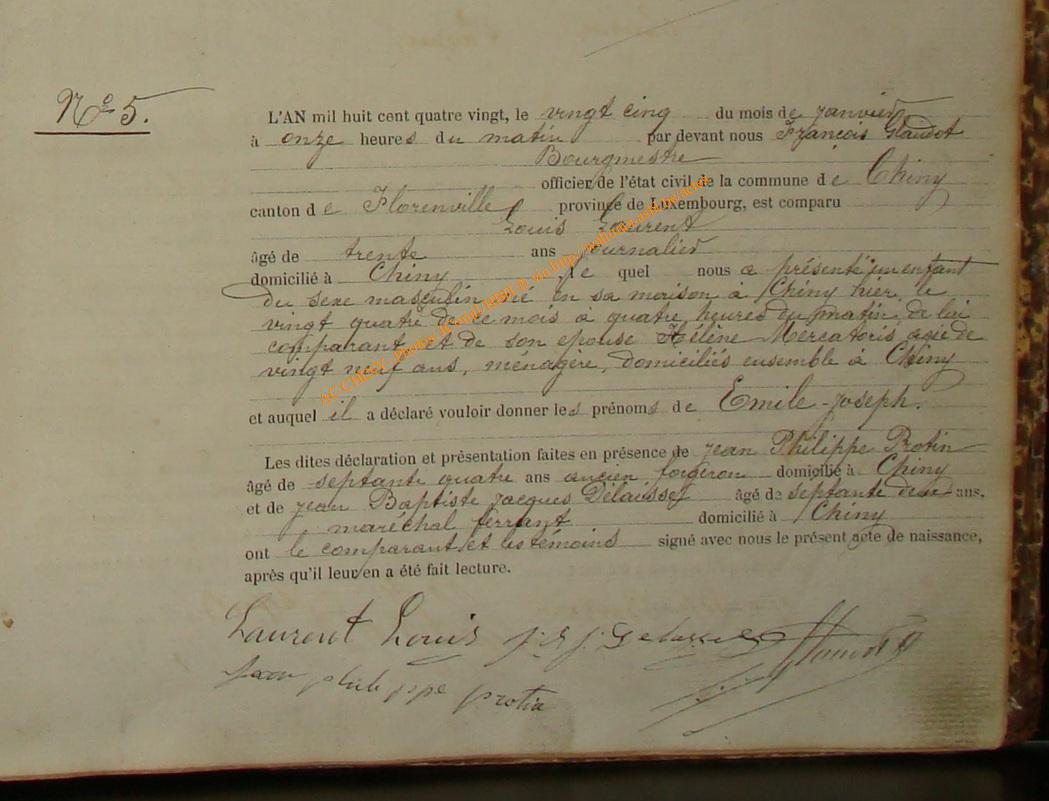 N° 5.
L'AN mil huit cent quatre vingt, le vingt cinq du mois de janvier
à onze heures du matin par devant nous François Glaudot
Bourgmestre
officier de l'état civil de la commune de Chiny
canton de Florenville province de Luxembourg, est comparu
Louis Laurent
âgé de trente ans journalier
domicilié à Chiny le quel nous a présenté un enfant
du sexe masculin né en sa maison à Chiny hier le
vingt quatre de ce mois à quatre heures du matin de lui
comparant et de son épouse Hélène Mercatoris agée de
vingt neuf ans, ménagère, domiciliés ensemble à Chiny
et auquel il a déclaré vouloir donner les prénoms de Emile-Joseph.
Les dites déclaration et présentation faites en présence de Jean Philippe Protin
âgé de septante quatre ans ancien forgeron domicilié à Chiny
et de Jean Baptiste Jacques Delaisse âgé de septante deux ans,
maréchal ferrant domicilié à Chiny
ont le comparant et les témoins signé avec nous le présent acte de naissance,
après qu'il leur en a été fait lecture.
Laurent Louis j. B j. Glaudot
jean philippe protin